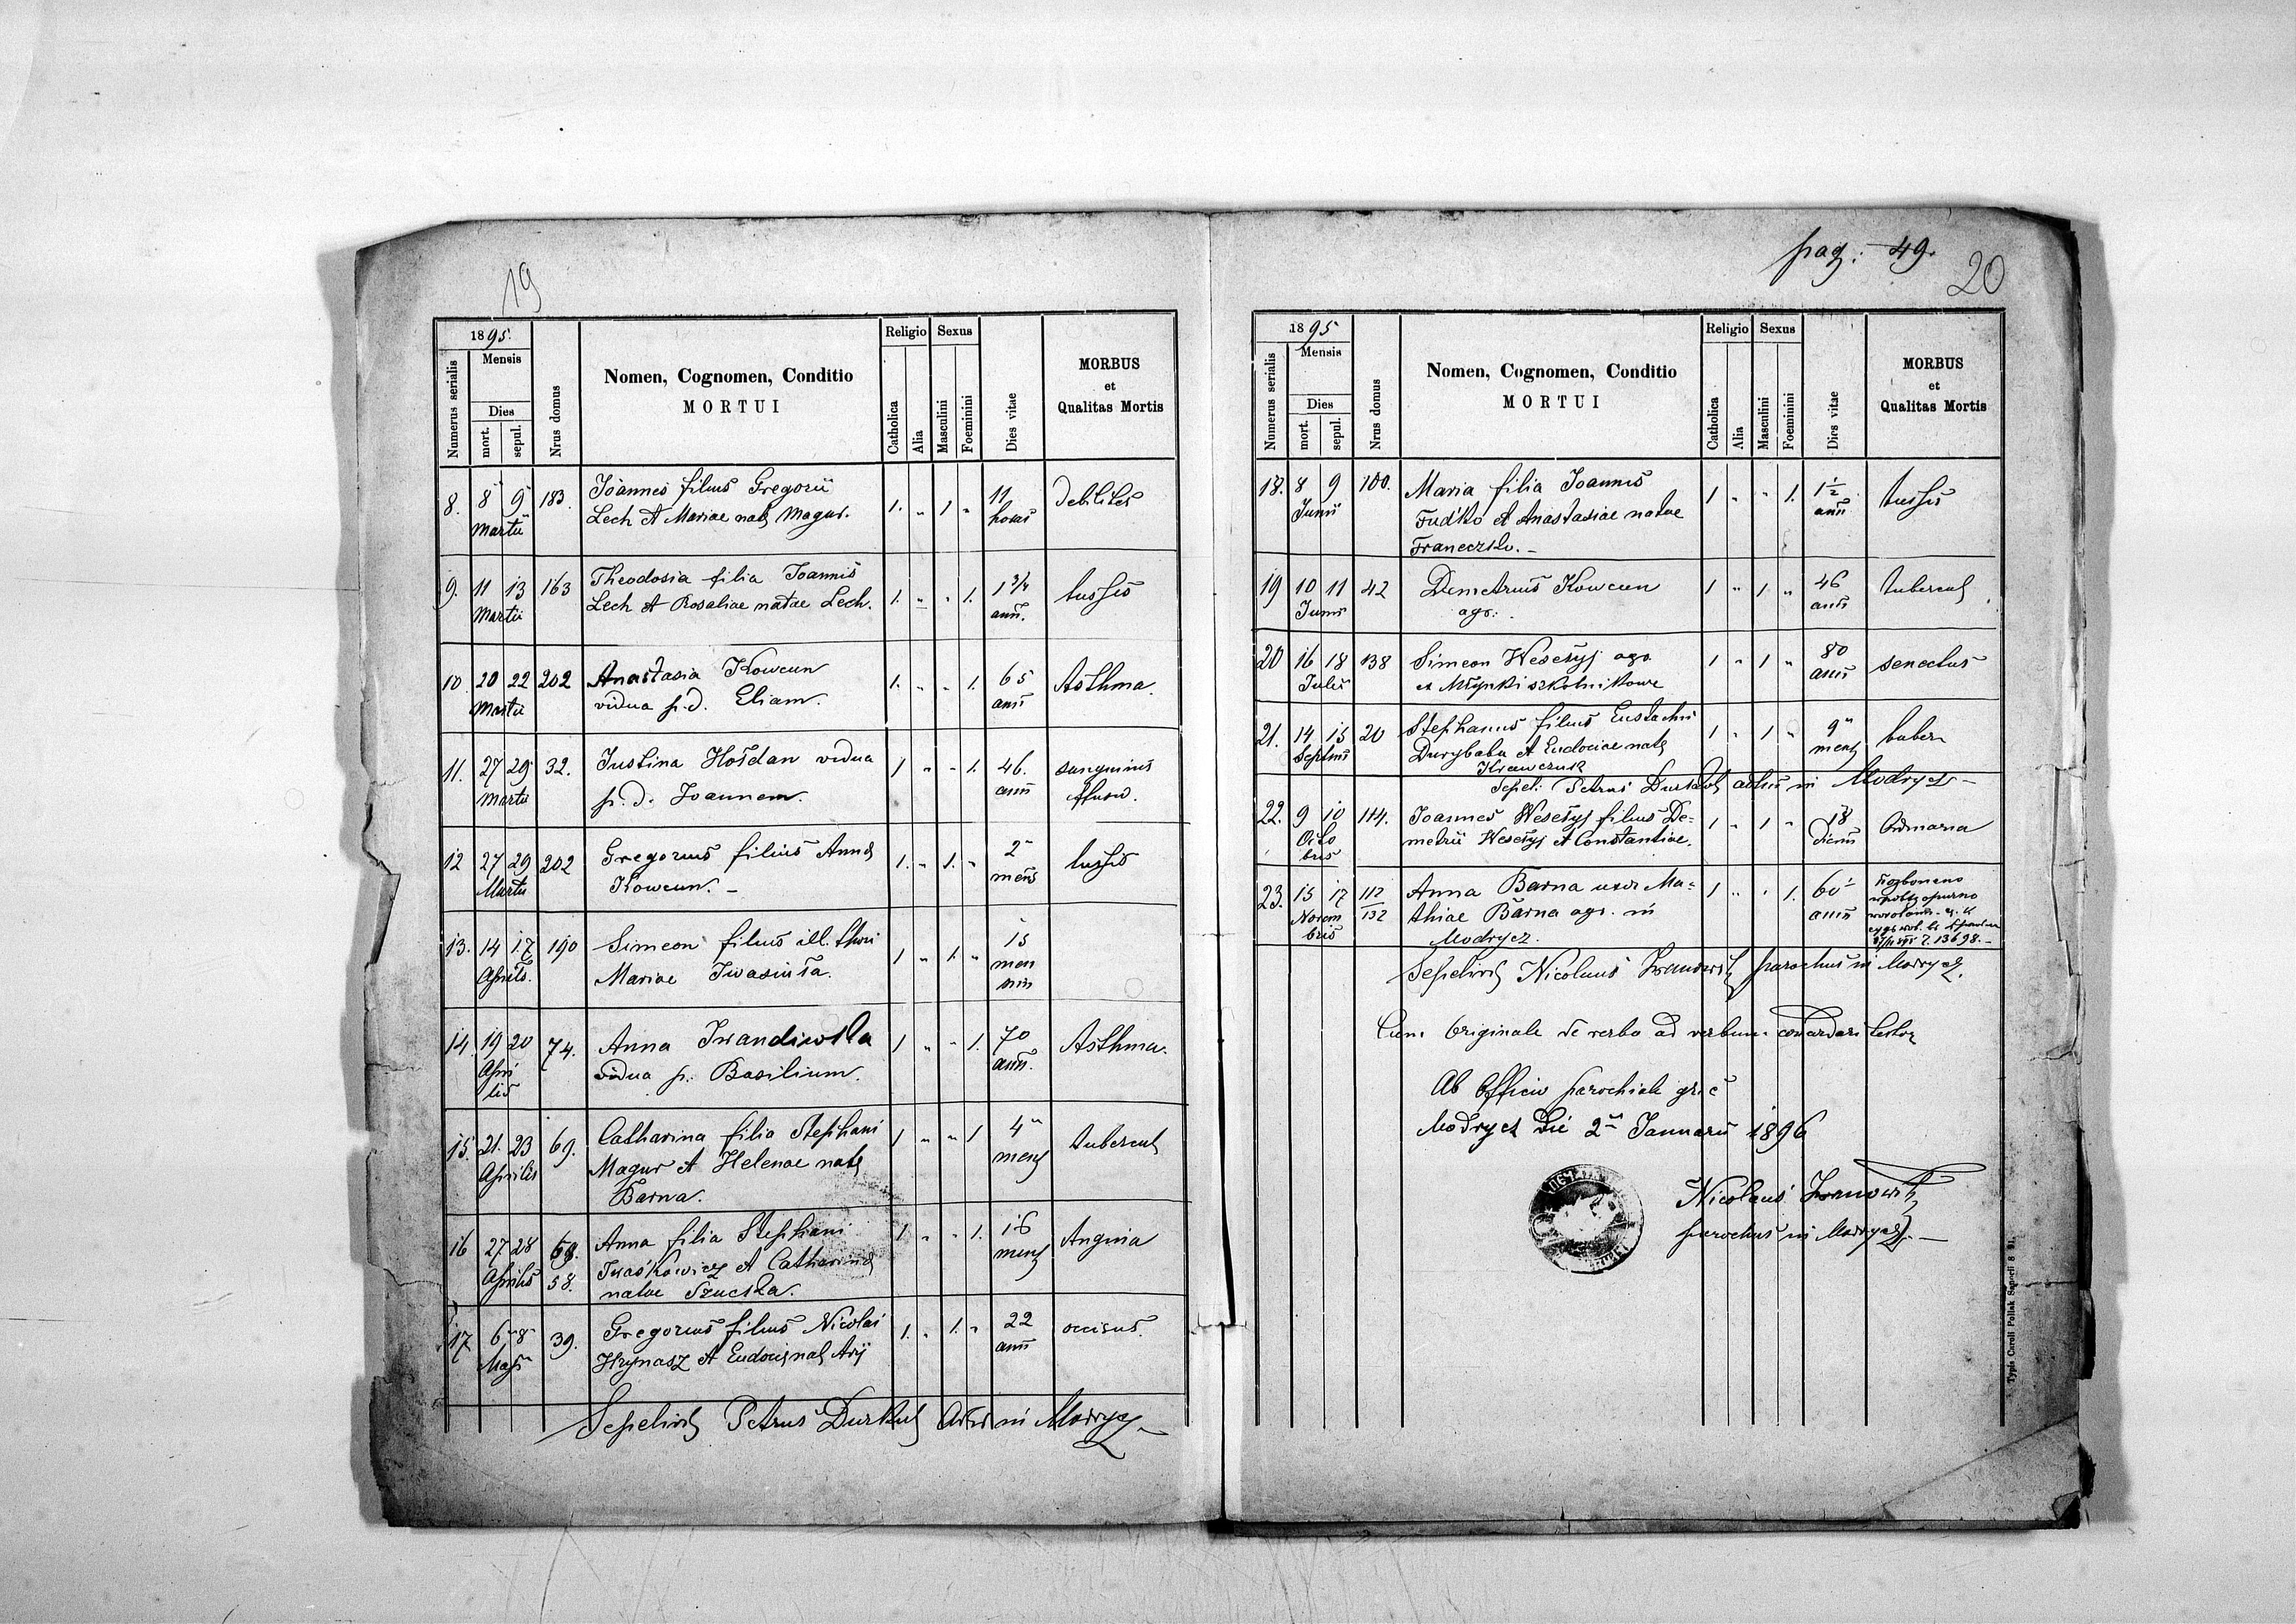 19
1895.
Numerus serialis
Mensis
Dies
mort.
sepul.
Nrus domus
Nomen, Cognomen, Conditio
MORTUI
Religio
Catholica
Alia
Sexus
Masculini
Foeminini
Dies vitae
MORBUS
et
Qualitas Mortis
8. 8 9 183. Joannes filius Gregorii 1. " 1 " 11 Debilitas
Martii Lech et Mariae nate Magur. horas
9. 11 13 163 Theodosia filia Joannis 1. " " 1. 1 3/4 tussis
Martii Lech et Rosaliae natae Lech. anni.
10. 20 22 202 Anastasia Kowcun 1. " " 1. 65 Asthma.
Martii vidua p.d. Eliam. anni
11. 27 29 32. Justina Hołdan vidua 1 " " 1. 46. sanguinis
Martii p.d. Joannem. anni
12 27 29 202 Gregorius filius Annae 1. " 1. " 2 tussis
Martii Kowcun. — mens
13. 14 17 190 Simeon filius ill. thori 1 " 1. " 15
Aprils. Mariae men
sium
14. 19 20 74. Anna 1 " " 1. 70 Asthma.
Apri vidua p. Basilium. anni.
lis
15. 21. 23 69. Catharina filia Stephani 1 " " 1 4 tubercul
Aprilis Magur et Helenae nate mens
Barna.
16 27 28 68. Anna filia Stephani 1. " " 1. 16 Angina
Aprilis 58. Iwaśkowicz et Catharinae mens
natae
17 6 8 39. Gregorius filius Nicolai 1. " 1. " 22 occisus.
Maji Hrynasz et anni
Sepelivit Petrus Adm in Modrycz
pag: 49.
20
1895
Numerus serialis
Mensis
Dies
mort.
sepul.
Nrus domus
Nomen, Cognomen, Conditio
MORTUI
Religio
Catholica
Alia
Sexus
Masculini
Foeminini
Dies vitae
MORBUS
et
Qualitas Mortis
18. 8 9 100. Maria filia Joannis 1 " " 1. 1 1/2 tussis
Junii Fudko et Anastasiae natae anni
Franeczko. —
19 10 11 42 Demetrius Kowcun 1 " 1 " 46 tubercul
Junii agr. anni
20 16 18 138 Simeon Wesełyj agr. 1 " 1 " 80 senectus
Julii anni
21. 14 15 20 Stephanus filius Eustachii 1 " 1 " 9 tuber
Septmis et Eudociae nate mens
Krawczuk
Sepel: Petrus in Modrycz —
22. 9 10 114. Joannes Wesełyj filius De= 1 " 1 " 18
Octo metrii Wesełyj et Constantiae. dierum
bris
23. 15 17 112/132 Anna Barna uxor Ma= 1 " " 1. 60
Novem thiae Barna agr. in anni
bris Modrycz. 13698. —
Sepelivit Nicolaus parochus in Modrycz.
Cum Originale de verbo ad verbum testor
Ab Officio parochiale gr. c
Modrycz die 2 Januarii 1896
Nicolaus
parochus in Modrycz. —
Typis Caroli Pollak Sanocii